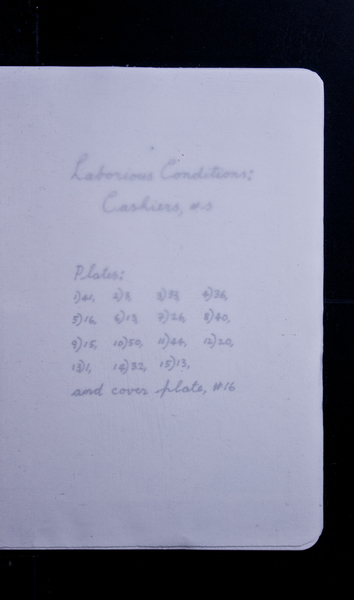 Laborious Conditions:
Cashiers, #5
Plates:
1)41, 2)8, 3)35, 4)36,
5)16, 6)13, 7)26, 8)40,
9)15, 10)50, 11)44, 12)20,
13)1, 14)32, 15)13,
and cover plate, #16